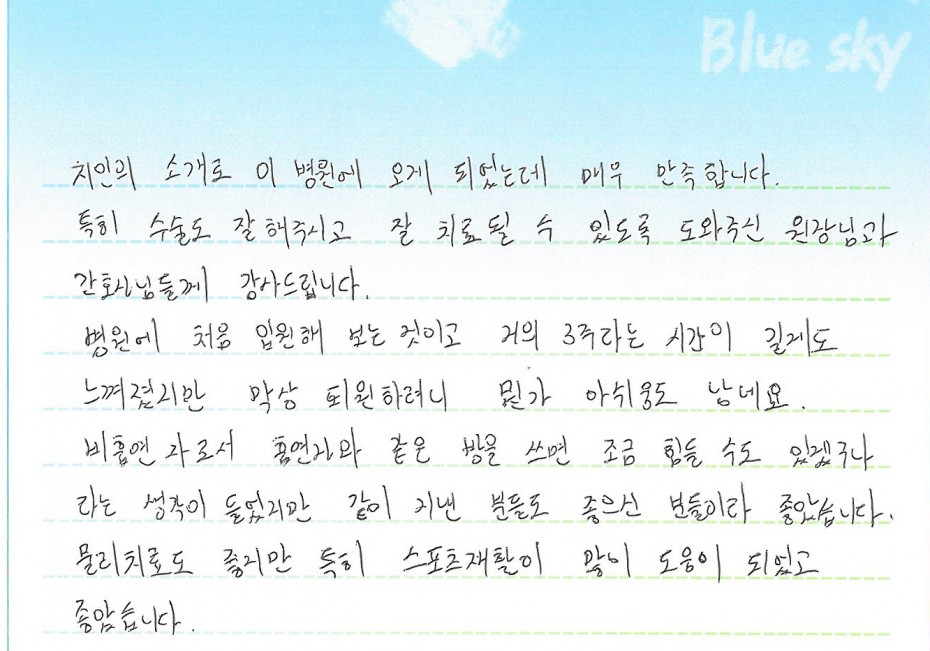 Blue sky
지인의 소개로 이 병원에 오게 되었는데 매우 만족합니다.
특히 수술도 잘해주시고 잘 치료될 수 있도록 도와주신 원장님과
간호사님들께 감사드립니다.
병원에 처음 입원해 보는 것이고 거의 3주라는 시간이 길게도
느껴졌지만 막상 퇴원하려니 뭔가 아쉬움도 남네요.
비흡연자로서 흡연자와 같은 방을 쓰면 조금 힘들 수도 있겠구나
라는 생각이 들었지만 같이 지낸 분들도 좋으신 분들이라 좋았습니다.
물리치료도 좋지만 특히 스포츠재활이 많이 도움이 되었고
좋았습니다.